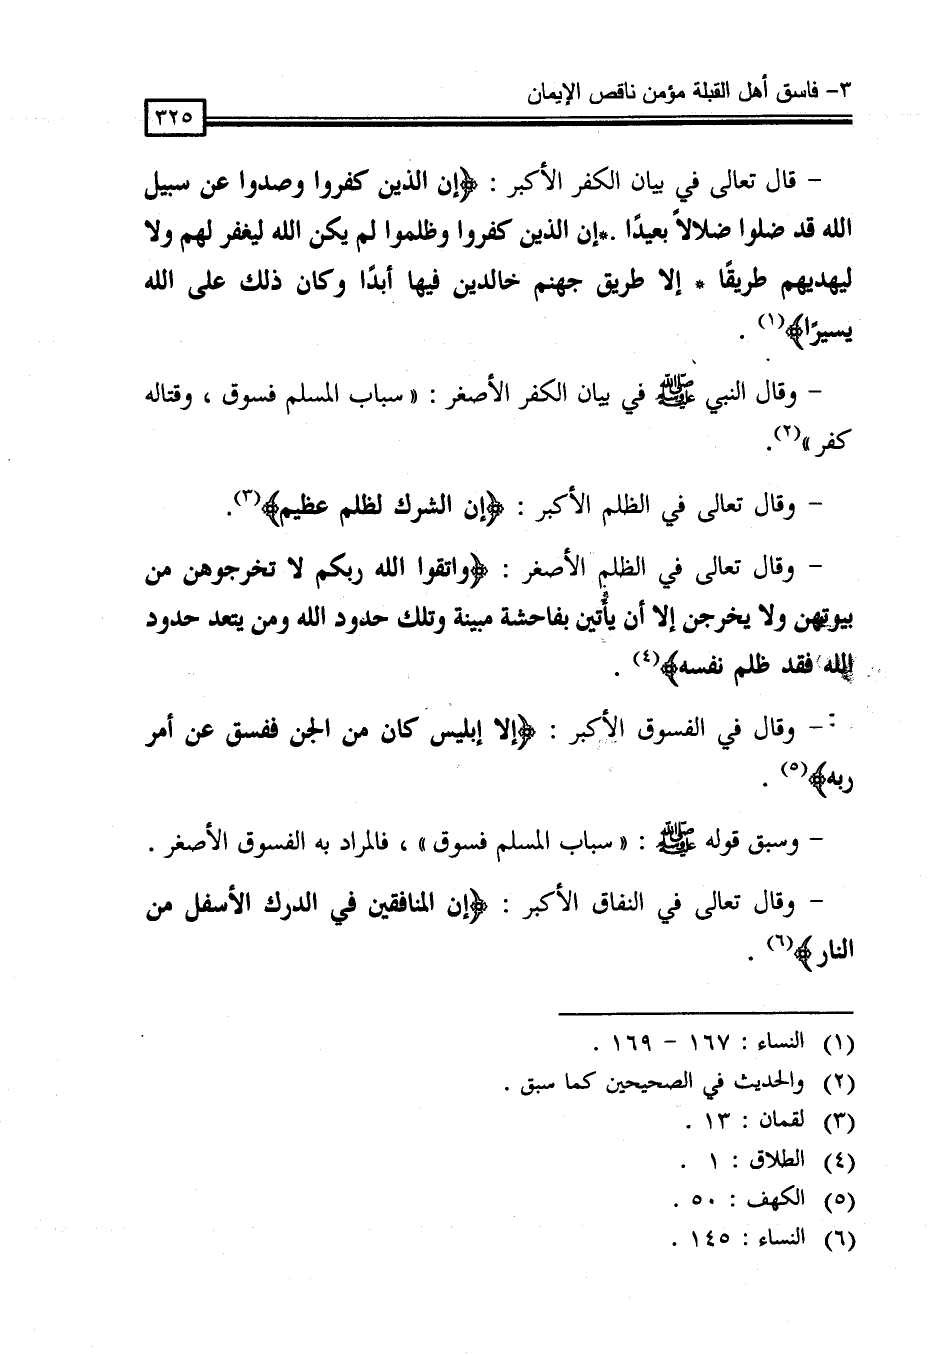 ٣- فاسق أهل القبلة مؤمن ناقص الإيمان
٣٢٥
- قال تعالى في بيان الكفر الأكبر : ﴿إن الذين كفروا وصدوا عن سبيل
الله قد ضلوا ضلالاً بعيدًا .*إن الذين كفروا وظلموا لم يكن الله ليغفر لهم ولا
ليهديهم طريقًا * إلا طريق جهنم خالدين فيها أبدًا وكان ذلك على الله
يسيرًا﴾(١) .
- وقال النبي ﷺ في بيان الكفر الأصغر : « سباب المسلم فسوق ، وقتاله
كفر »(٢).
- وقال تعالى في الظلم الأكبر : ﴿إن الشرك لظلم عظيم﴾(٣).
- وقال تعالى في الظلم الأصغر : ﴿واتقوا الله ربكم لا تخرجوهن من
بيوتهن ولا يخرجن إلا أن يأتين بفاحشة مبينة وتلك حدود الله ومن يتعد حدود
الله فقد ظلم نفسه﴾(٤) .
- وقال في الفسوق الأكبر : ﴿إلا إبليس كان من الجن ففسق عن أمر
ربه﴾(٥) .
- وسبق قوله ﷺ : « سباب المسلم فسوق » ، فالمراد به الفسوق الأصغر .
- وقال تعالى في النفاق الأكبر : ﴿إن المنافقين في الدرك الأسفل من
النار﴾(٦) .
(١) النساء : ١٦٧ - ١٦٩ .
(٢) والحديث في الصحيحين كما سبق .
(٣) لقمان : ١٣ .
(٤) الطلاق : ١ .
(٥) الكهف : ٥٠ .
(٦) النساء : ١٤٥ .